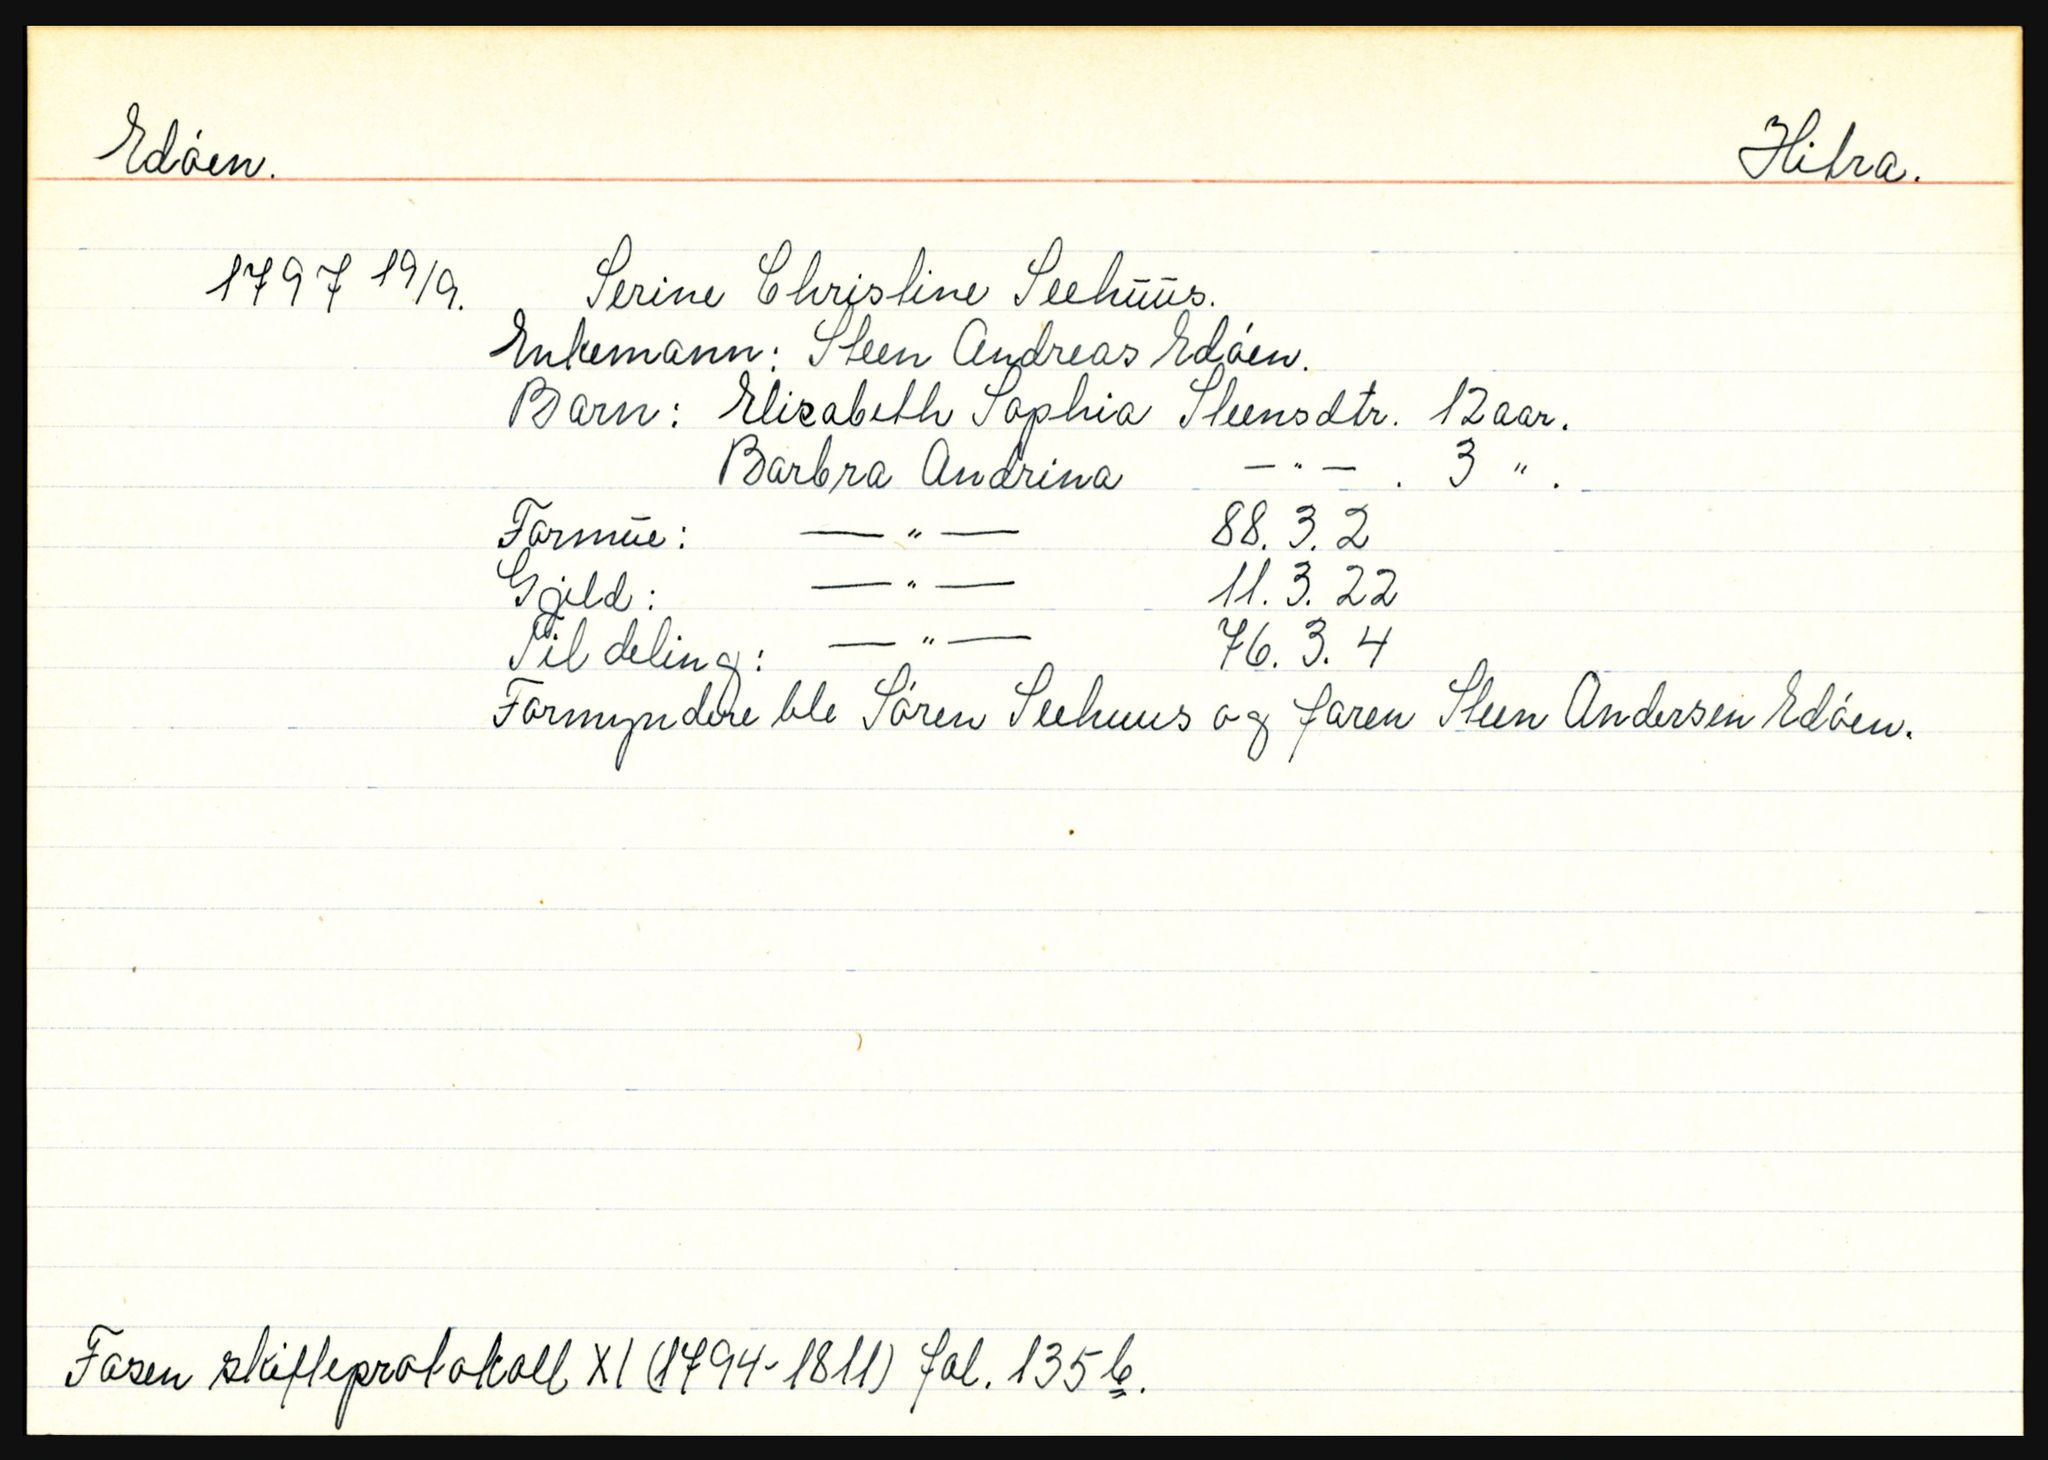 Edøen. Hitra.
1797 19/9. Serine Christine Seehuus.
Enkemann: Steen Andreas Edøen.
Barn: Elisabeth Sophia Steensdtr. 12 aar.
Barbra Andrina — " — . 3 " .
Formue: — " — 88. 3. 2
Gjeld: — " — 11. 3. 22
Til deling: — " — 76. 3. 4
Formyndere ble Søren Seehuus og faren Steen Andersen Edøen.
Fosen skifteprotokoll XI (1794-1811) fol. 135 b.